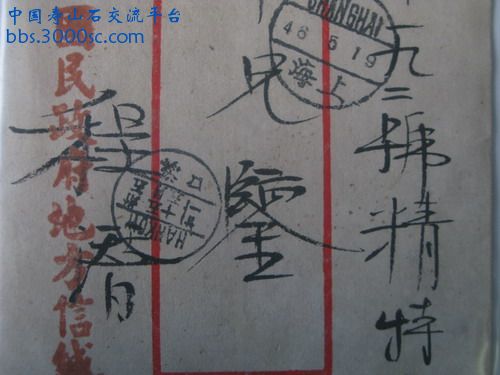 中国寿山石交流平台
bbs.3000sc.com
九二號精特
SHANGHAI
46 5 19
上海
兄鑒
HANKOW
國民政府地方信